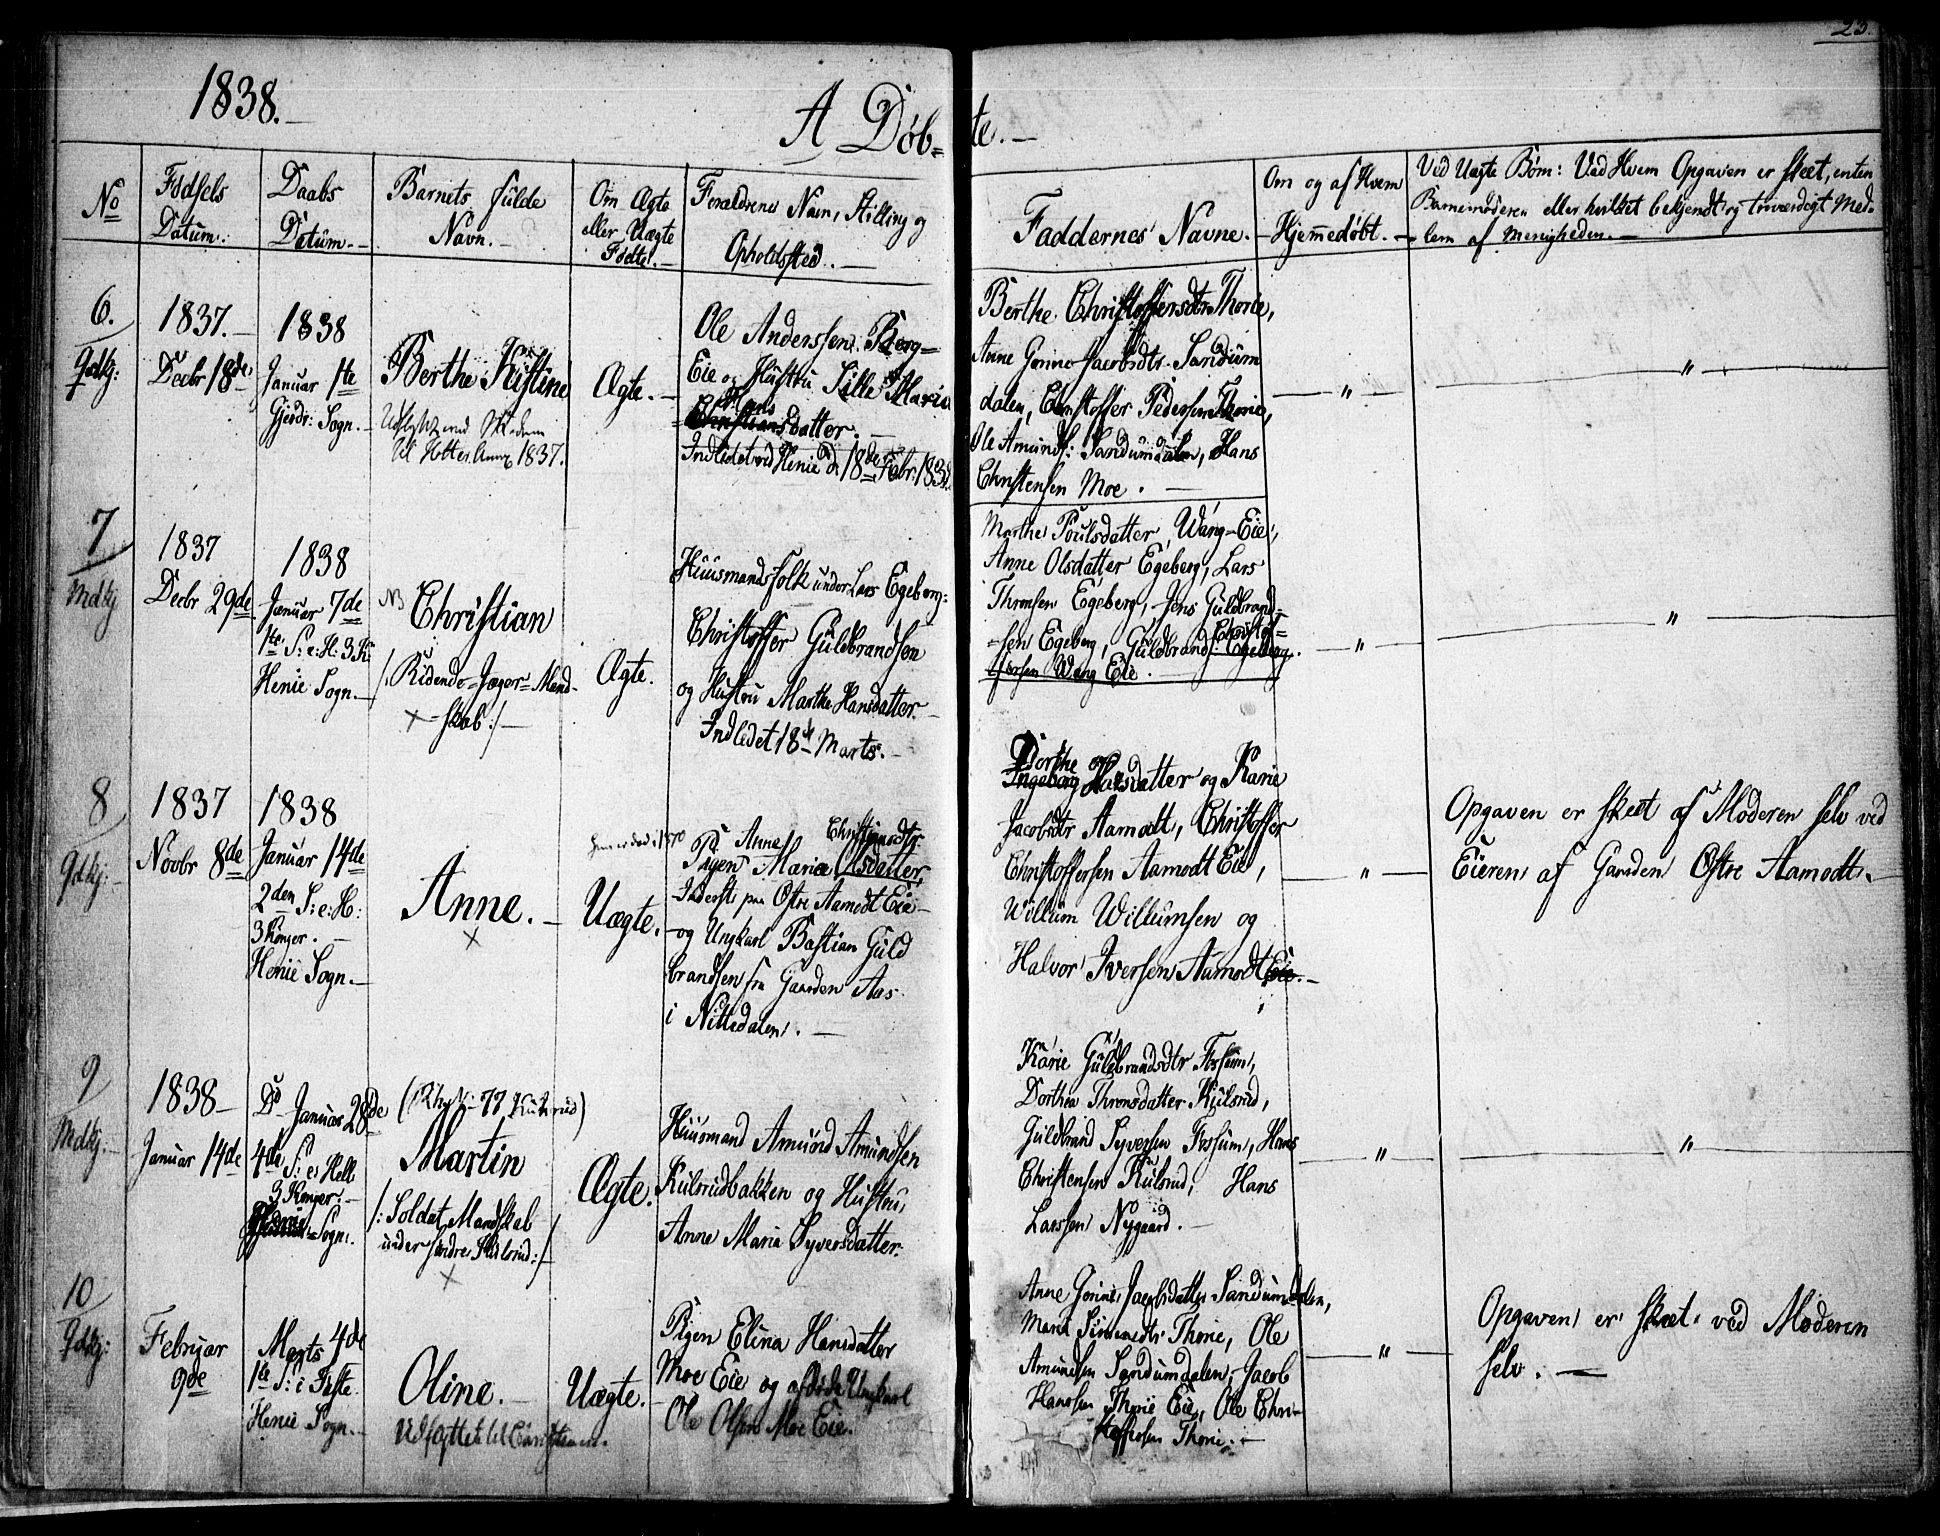 23.
1838.
A Døb=te.
No
Fødsels Datum.
Daabs Datum.
Barnets fulde Navn.
Om Ægte eller Uægte Fødte.
Forældrenes Navn, Stilling og Opholdssted.
Faddernes Navne.
Om og af Hvem Hjemmedøbt.
Ved Uægte Børn: Ved Hvem Opgaven er skeet, enten
Barnemoderen eller hvilket bekjendt og troværdigt Med-
lem af Menigheden.
6.
Qdkj:
1837.
Decbr 18de
1838
Januar 1te
Gjerdr: Sogn.
Berthe Kistine
1837.
Ægte.
Ole Anderssen Berg=
Eie og Hustru Sille Marie
Hans
Christiansdatter.
Indledet ved Henie d. 18de Febr: 1838.
Berthe Christoffersdtr Thorie,
Anne Gorine Jacobsdtr Sandum
dalen, Christoffer Pedersen Thorie,
Ole Amunds: Sandumdalen, og Hans
Christensen Moe.
"
"
7
Mdkj
1837
Decbr 29de
1838
Januar 7de
1te S: e: H: 3 K:
Henie Sogn.
NB
Christian
/: Ridende=Jæger=Mand-
skab :/
Ægte.
Huusmandsfolk under Lars Egeberg:
Christoffer Guldbrandsen
og Hustru Marthe Hansdatter.
Indledet 18de Marts.
Marthe Poulsdatter Wang=Eie,
Anne Olsdatter Egeberg, Lars
Thronsen Egeberg, Jens Guldbrand=
=sen Egeberg, Guldbrand: Egeberg.
Christof=
fersen Wang Eie.
"
"
8
Qdkj:
1837
Novbr 8de
1838
Januar 14de
2den S: e: H:
3 Konger.
Henie Sogn.
Anne.
Uægte.
Anne Christiansdtr
Pigen Maria Olsdatter,
Inderst paa Østre Aamodt Eie
og Ungkarl Bastian Guld
brandsen fra Gaarden Aas
i Nittedalen.
Dorthe
Ingeborg Hansdatter og Karie
Jacobsdtr Aamodt, Christoffer
Christoffersen Aamodt Eie,
Willum Willumsen og
Halvor Iversen Aamodt Eie.
"
Opgaven er skeet af Moderen selv ved
Eieren af Gaarden Østre Aamodt.
9
Mdkj.
1838
Januar 14de
Do Januar 28de
4de S: e: Hell
3 Konger.
Sogn.
Martin
/: Soldat Mandskab
under søndre Kulsrud :/
Ægte.
Huusmand Amund Amundsen
Kulsrudbakken og Hustru,
Anne Maria Syversdatter.
Karie Guldbrandsdtr Fossum,
Dorthea Thronsdatter Kulsrud,
Guldbrand Syversen Fossum, Hans
Christensen Kulsrud, Hans
Larssen Nygaard.
"
"
10
Qdkj:
Februar
9de
Marts 4de
1te S: i Faste
Henie Sogn.
Oline.
Uægte.
Pigen Elina Hansdatter
Moe Eie og afdøde Ungkarl
Ole Olsen Moe Eie.
Anne Gorine Jacobsdatter Sandumdalen,
Thorie, Ole
Amundsen Sandumdalen, Jacob
Hanssen Thorie Eie, Ole Chri-
stoffersen Thorie.
"
Opgaven er skeet ved Moderen
selv.